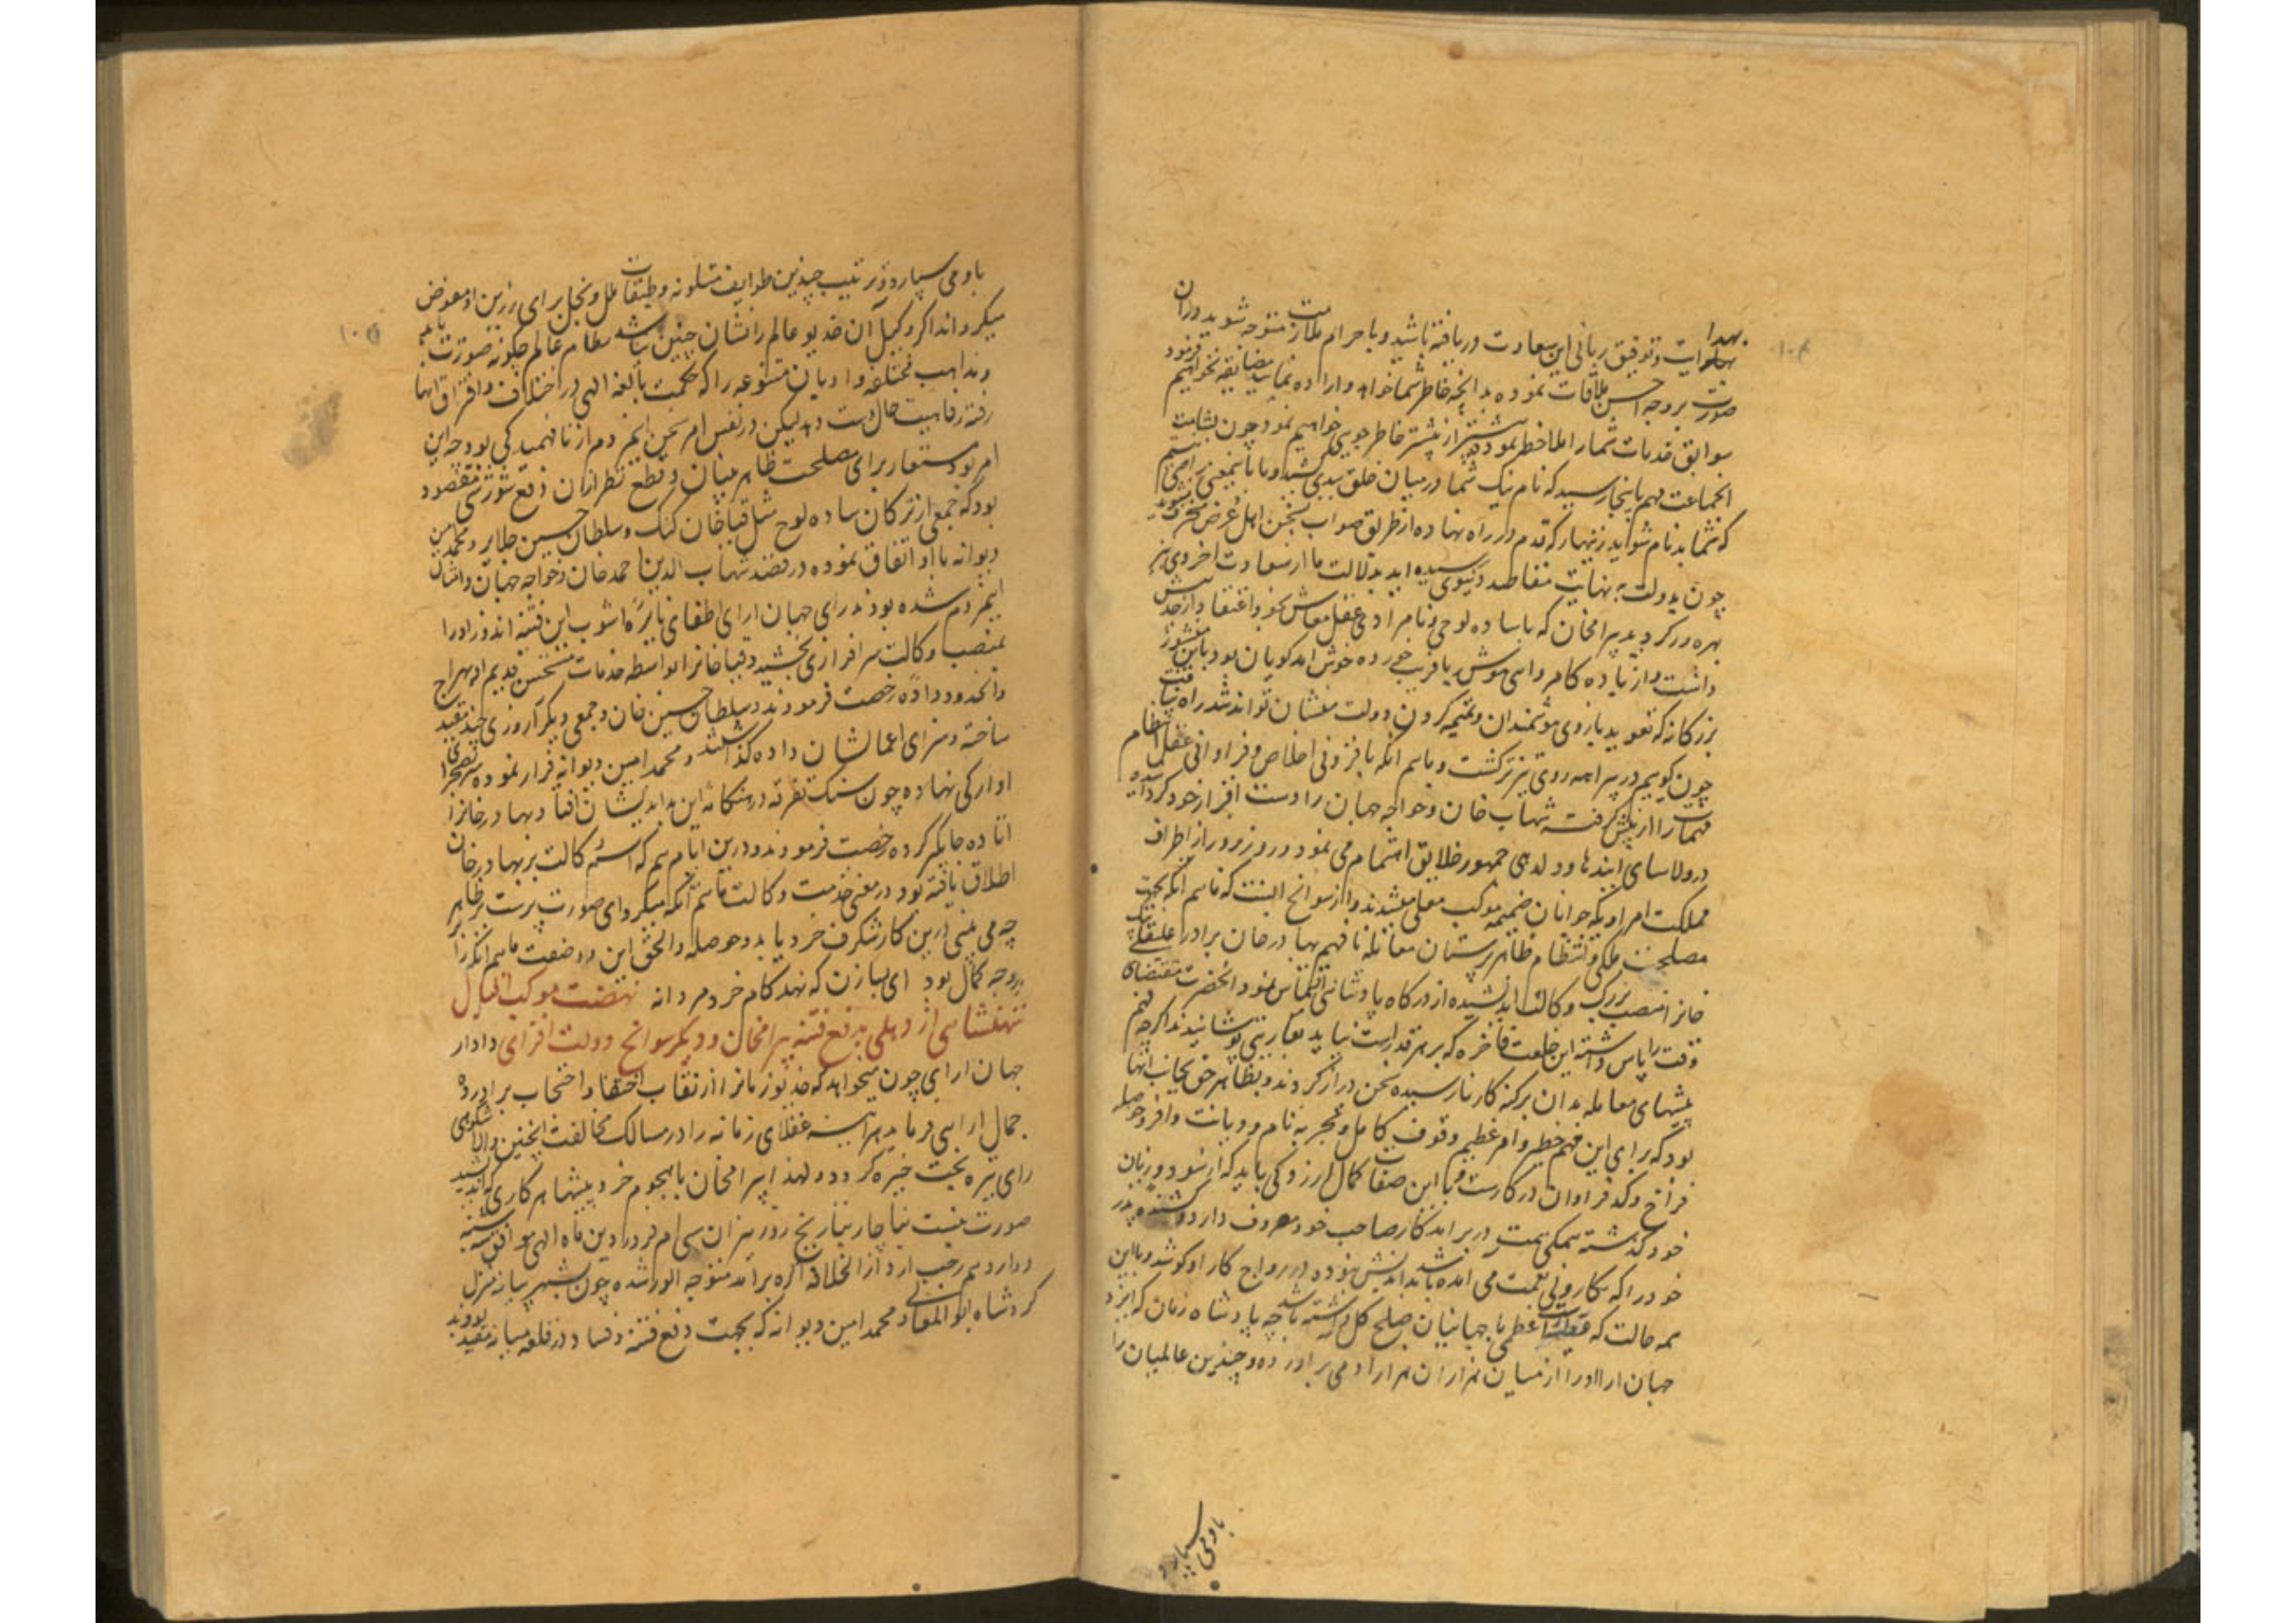 بهدایت و توفیق ربانی این سعادت دریافته باشید و با حرام ملازمت متوجه شوید دران
صورت بر وجه احسن ملاقات نموده بدانچه خاطر شما خواهد و اراده نمایید مضایقه نخواهیم فرمود
سوابق خدمات شما را ملاحظه نموده بیشتر از پیشتر خاطر جویی خواهیم نمود چون بشامت
انجماعت مهم باینجا رسید که نام نیک شما در میان خلق ببدی کشید و ما باینمعنی راضی نیستیم
که شما بدنام شوید زنهار که قدم در راه نهاده از طریق صواب بسخن اهل غرض منحرف نشوید
چون بدولت به نهایت مقاصد دنیوی رسیده اید بدلالت ما از سعادت اخروی نیز
بهره ور گردید بیرامخان که با ساده لوحی و نامرادی عقل معاش خود و اعتقاد از حد بیش
داشت و از باده کامروایی مدهوش یا فریب خورده خوش آمدگویان بود باین منشور
بزرگانه که تعویذ بازوی هوشمندان و تمیمه گردن دولت منشان تواند شد راه نیافت
چون گوییم در بیراهه روی تیزتر گشت و ماهم انگه با فزونی اخلاص و فراوانی عقل انتظام
مهمات را از پیش گرفته شهاب خان و خواجه جهان را دست افزار خود گردانیده
در ولاسای ایندها و دلدهی جمهور خلایق اهتمام می نمود و روز بروز از اطراف
مملکت امرا و یکه جوانان ضمیمه موکب معلی میشدند و از سوانح انست که ماهم انگه بجهت
مصلحت ملکی و انتظام ظاهر پرستان معامله نافهم بهادر خان برادر علیقلی
خانرا منصب بزرگ وکالت اندیشیده از درگاه پادشاهی التماس نمود و انحضرت مقتضای
وقت را پاس داشته این خلعت فاخره که بر هر قد راست نیاید بعاریتی پوشانیدند اگرچه فهم
پیشهای معامله بدان برکنه کار نارسیده سخن دراز کردند و بظاهر حق بجانب انها
بود که برای این مهم خطیر و امر عظیم وقوف کامل و تجربه تمام و دیانت وافر و حوصله
فراخ و کد فراوان در کارست و با این صفات کمال ارزوکی باید که از سود و زیان
خود گذشته همگی همت در برآمد کار صاحب خود مصروف دارد و کشنده پدر
خود را که بکار ولی نعمت می آمده باشد بدانش خود در رواج کار او کوشد و با این
همه حالت که عظمی با جهانیان صلح کل داشته باشد چه پادشاه زمان که ایزد
جهان آرا او را از میان هزاران هزار آدمی برآورده و چندین عالمیان را
باو می سپارد
باو می سپارد و ترتیب چندین طوایف متلونه و طبقات ملل و نحل برای رزین او مفوض
میگرداند اگر وکیل آن خدیو عالم را نشان چنین باشد نظام عالم چگونه صورت یابد
و مذاهب مختلفه و ادیان متنوعه را که حکمت بالغه الهی در اختلاف و افتراق انها
رفته رفاهیت حالست دهد لیکن در نفس امر سخن اینمردم از نافهمیدگی بود چه این
امر بود مستعار برای مصلحت ظاهر بینان و قطع نظر از ان دفع شورشی مقصود
بود که جمعی از ترکان ساده لوح مثل قیا خان کنک و سلطان حسین جلایر و محمد امین
دیوانه با او اتفاق نموده در قصد شهاب الدین احمد خان و خواجه جهان و امثال
اینمردم شده بودند رای جهان ارای اطفای نایره اشوب این فتنه اندوز او را
بمنصب وکالت سرافرازی بخشید و قیا خانرا بواسطه خدمات مستحسن قدیم او بهراج
و انحدود داده رخصت فرمودند و سلطان حسین خان و جمعی دیگر را روزی چند مقید
ساخته و سزای اعمالشان داده گذاشتند و محمد امین دیوانه فرار نموده سر بصحرای
اوارگی نهاده چون سنگ تفرقه در هنگامه این بداندیشان افتاد بهادر خانرا
اتاوه جایگیر کرده رخصت فرمودند و درین ایام هم که اسم وکالت بر بهادر خان
اطلاق یافته بود در معنی خدمت وکالت ماهم انگه میکرد ای صورت پرست بر ظاهر
چه می بینی درین کار شگرف خرد باید و حوصله و الحق این دو صفت ماهم انگه را
بر وجه کمال بود ای بسا زن که نهد گام خرد مردانه نهضت موکب اقبال
شهنشاهی از دهلی بدفع فتنه بیرامخان و دیگر سوانح دولت افزای دادار
جهان آرای چون میخواهد که خدیو زمانرا از نقاب اختفا و احتجاب براورده
جمال ارایی فرماید هراینه عقلای زمانه را در مسالک مخالفت اینچنین والا شکوهی
رای تیره بخت خیره گردد لهذا بیرامخان با هجوم خرد پیشها هر کاری که اندیشید
صورت نبست ناچار بتاریخ روز انیران سی ام فروردین ماه الهی موافق شنبه
دوازدهم رجب از دارالخلافه اگره برآمد متوجه الور شده چون بشهر بیانه منزل
کرد شاه ابوالمعالی و محمد امین دیوانه که بجهت دفع فتنه و فساد در قلعه بیانه مقید بودند